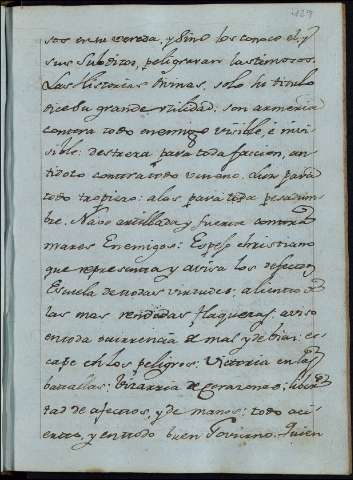 429
sos en su vereda, y sino los conoce el, y
sus subditos, peligraran lastimosos.
Las Historias Divinas, solo su titulo
dice su grande utilidad: son armeria
contra todo enemigo visible, è invi-
sible: destreza para toda faccion, an-
tidoto contra todo veneno. Luz para
todo tropiezo: alas para toda pesadum-
bre. Nave artillada, y fuerte contra
mares Enemigos: Espejo christiano
que representa, y avisa los defectos
Escuela de todas virtudes: aliento de
las mas rendidas flaquezas, aviso
en toda ocurrencia de mal, y de bien: es-
cape en los peligros: Victoria en las
batallas: bizarria de corazones: liber-
tad de afectos, y de manos: todo aci-
erto, y en todo buen Govierno. Quien